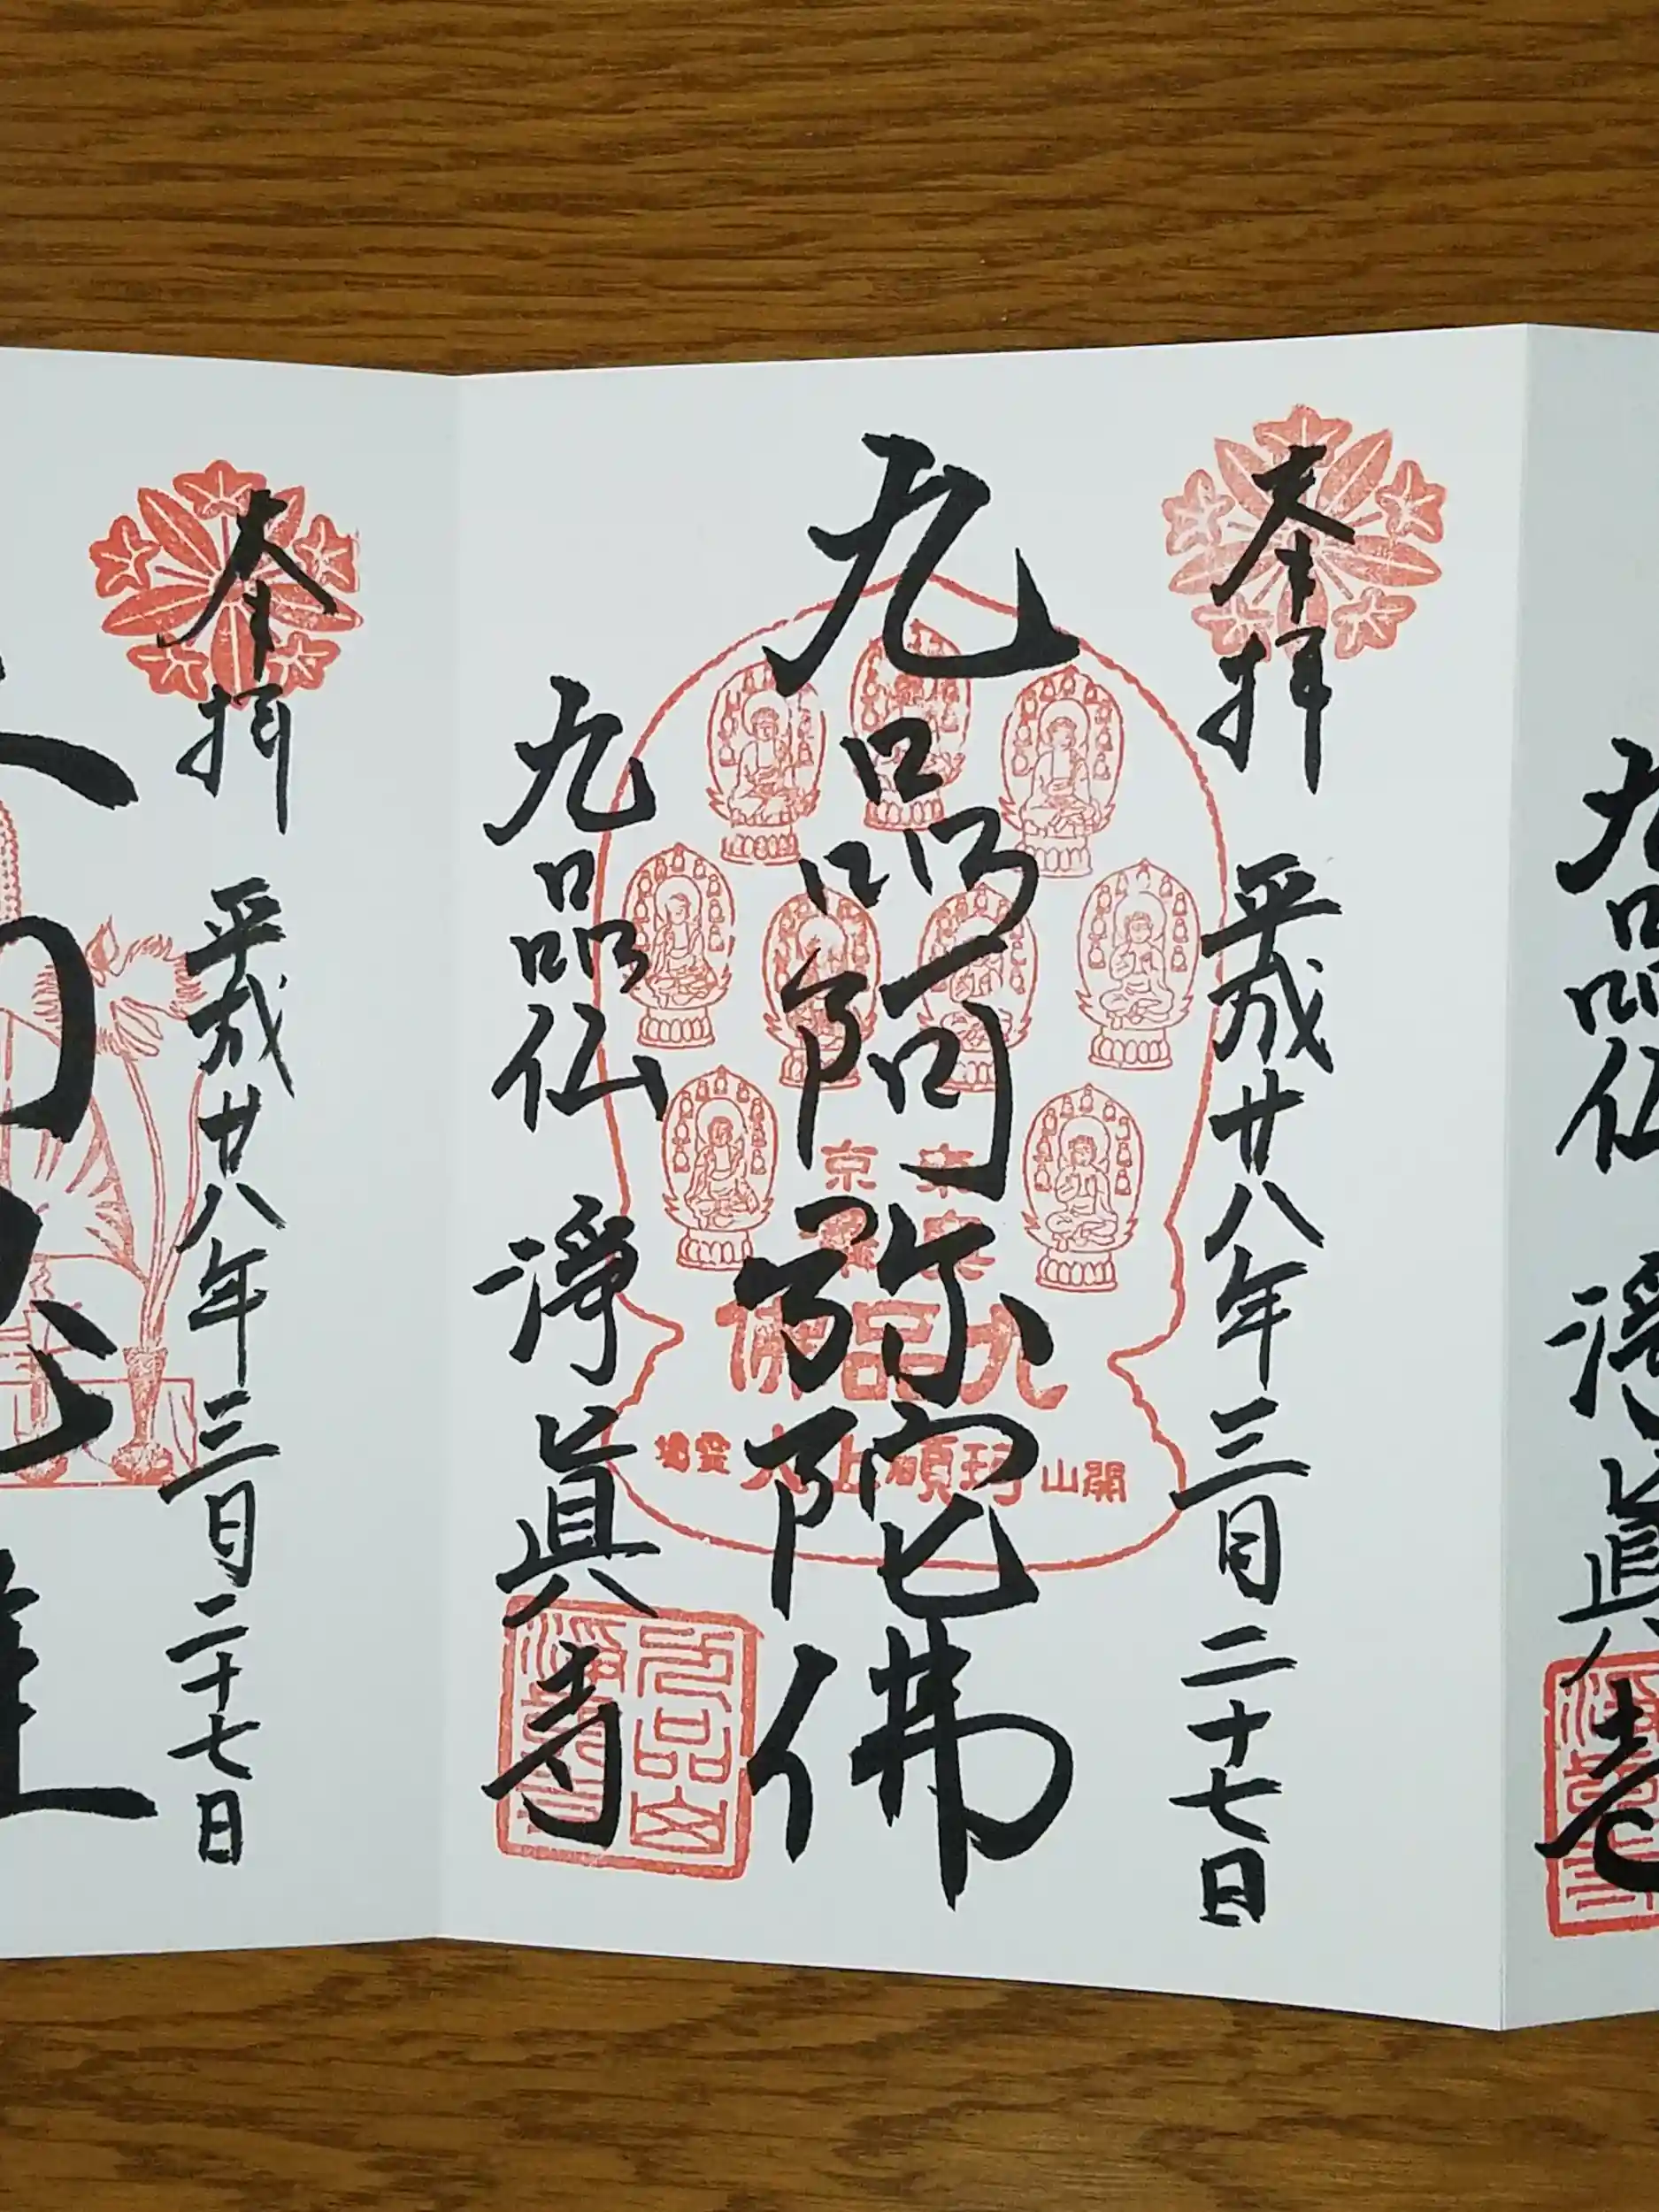 奉拝
平成廿八年三月二十七日
九品阿弥陀佛
九品仏
淨眞寺
東京
奥澤
九品佛
開山珂碩上人霊場
九品山
淨眞寺
奉拝
平成廿八年三月二十七日
九品仏
淨眞